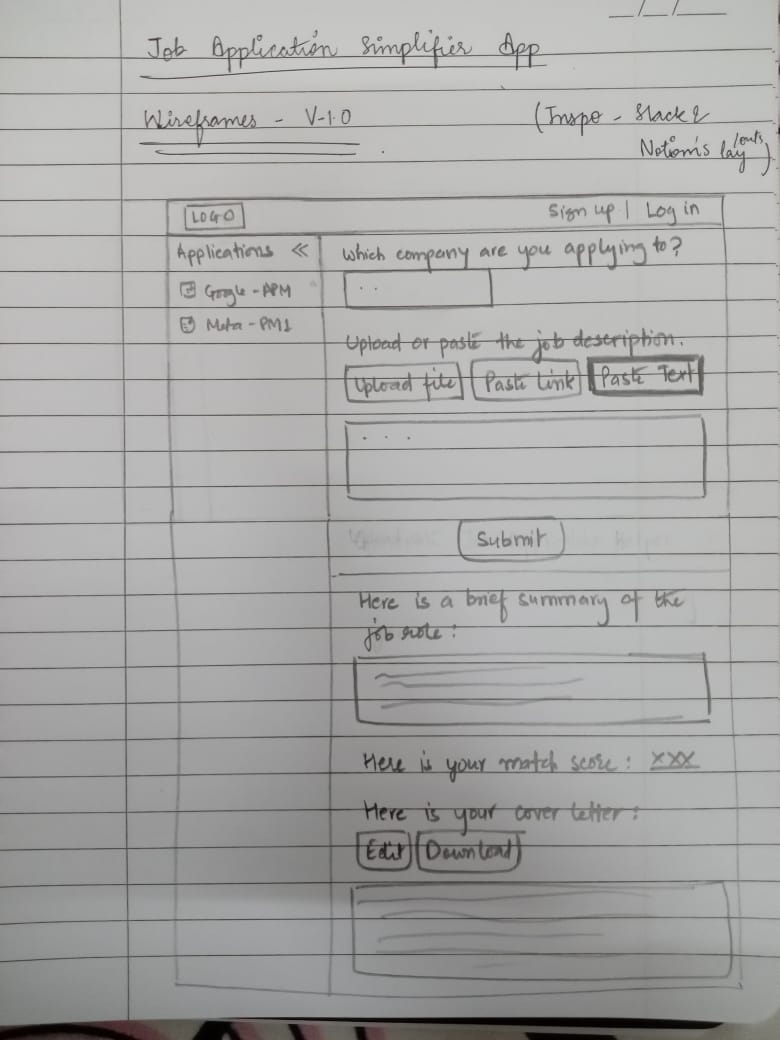 Job Application Simplifier App
Wireframes - V-1.0
(Inspo - Slack &
Notion's layouts)
LOGO
Sign up | Log in
Applications <<
Google - APM
Meta - PM1
Which company are you applying to?
. .
Upload or paste the job description.
Upload file
Paste Link
Paste Text
. . .
Submit
Here is a brief summary of the
job role :
Here is your match score : XXX
Here is your cover letter :
Edit
Download